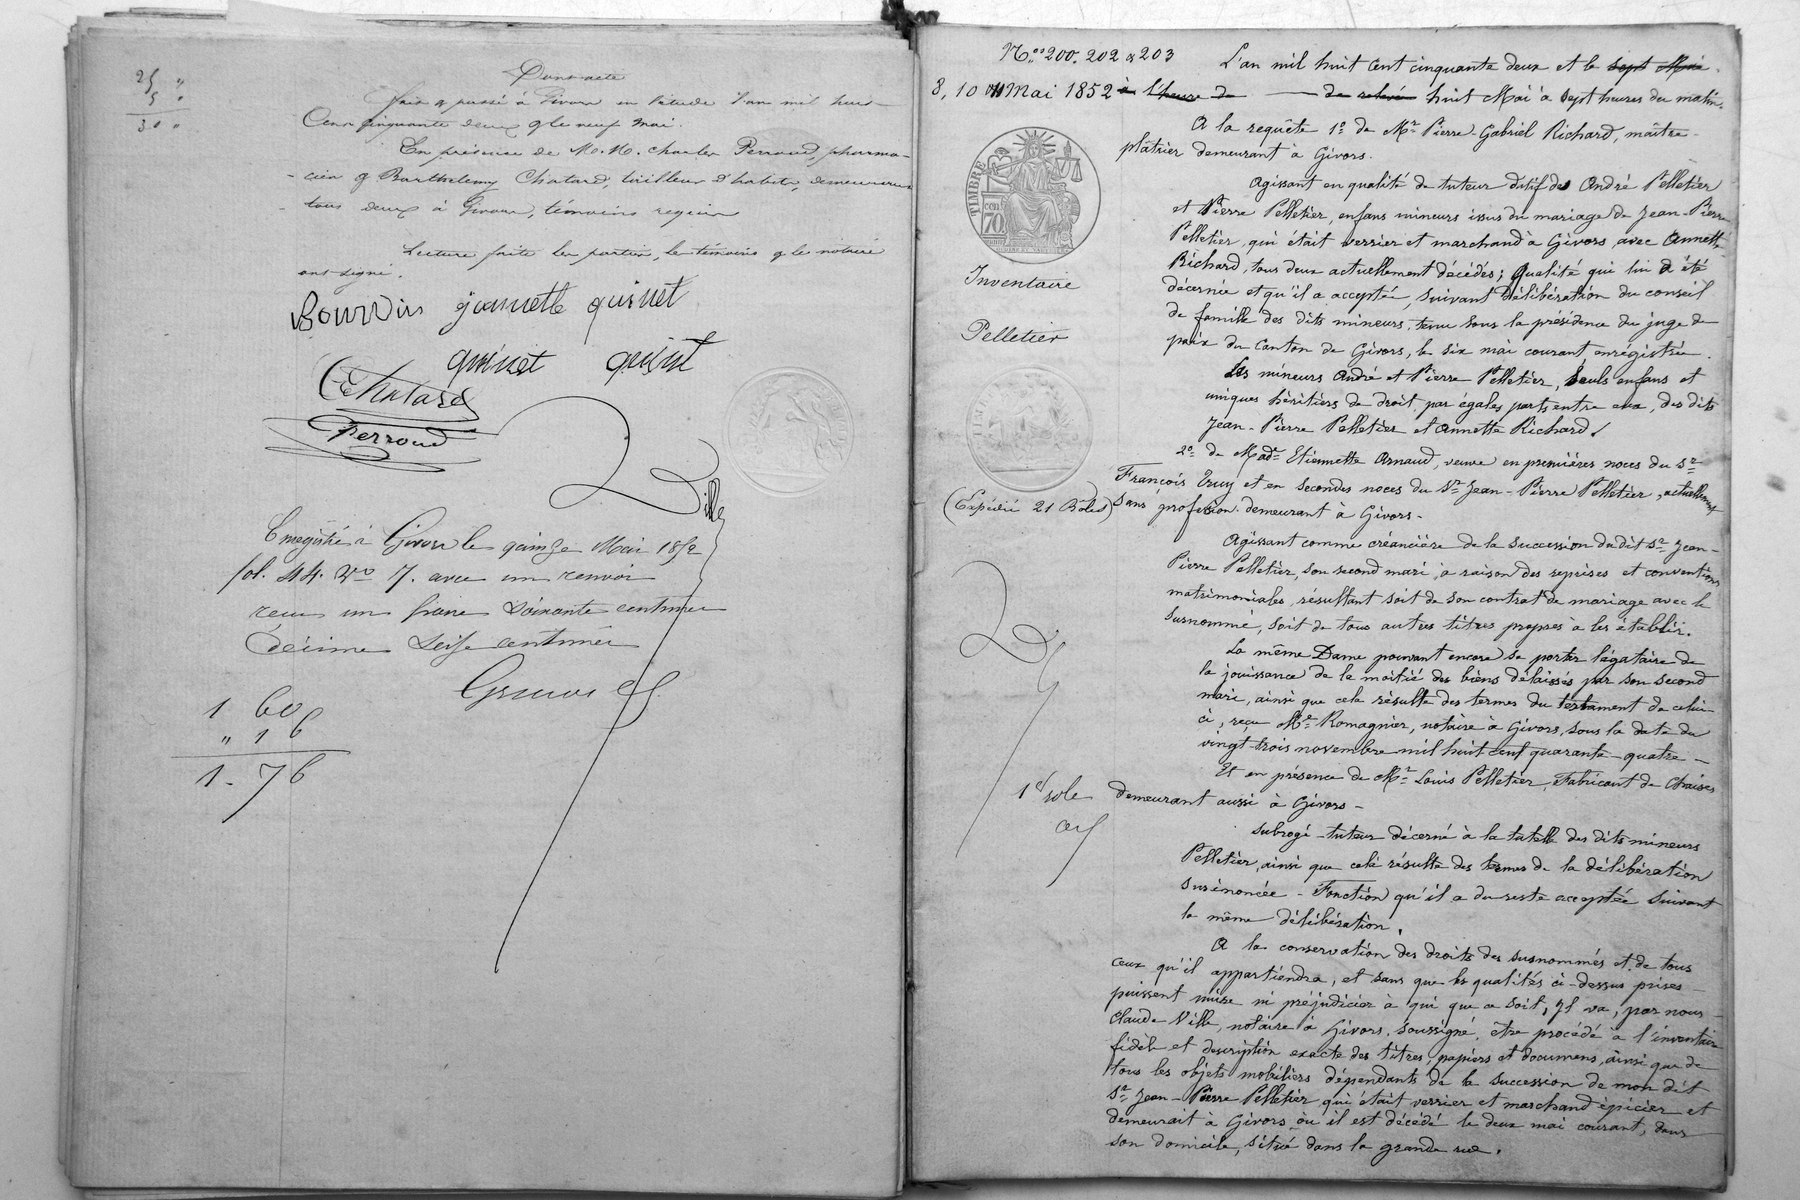 25 "
5 "
30 "
Dont acte
fait & passé à Givors en l'étude l'an mil huit
Cent cinquante deux & le neuf mai.
En présence de M.M. Charles Perroud, pharma-
-cien & Barthelemy Chatard, tailleur d'habits, demeurant
tous deux à Givors, témoins requis
Lecture faite les parties, les témoins & le notaire
ont signé.
Bourdin jeannette quinet
quinet quinet
Chatard
Perroud
Ville
Enregistré à Givors le quinze Mai 1852
fol. 44. Vo 7. avec un renvoi
reçu un franc soixante centimes
Décime seize centimes
1 60
" 16
1 - 76
Nos 200. 202 & 203
8, 10 Mai 1852
TIMBRE
70
Inventaire
Pelletier
(Expédié 21 Rôles)
1er role
L'an mil huit cent cinquante deux et le sept Mai
à l'heure de de relevé huit Mai à sept heures du matin.
A la requête 1º de Mr Pierre-Gabriel Richard, maître-
plâtrier demeurant à Givors.
Agissant en qualité de tuteur datif de André Pelletier
et Pierre Pelletier, enfans mineurs issus du mariage de Jean-Pierre
Pelletier, qui était verrier et marchand à Givors, avec Annette
Richard, tous deux actuellement décédés; qualité qui lui a été
décernée et qu'il a acceptée, suivant délibération du conseil
de famille des dits mineurs, tenu sous la présidence du juge de
paix du Canton de Givors, le six mai courant, enrégistrée.
Les mineurs André et Pierre Pelletier, seuls enfans et
uniques héritiers de droit, par égales parts entre eux, des dits
Jean-Pierre Pelletier et Annette Richard.
2º de Made Etiennette Arnaud, veuve en premières noces du Sr
François Truy et en secondes noces du Sr Jean-Pierre Pelletier, actuellement
sans profession demeurant à Givors.
Agissant comme créancière de la succession dudit Sr Jean-
Pierre Pelletier, son second mari, à raison des reprises et conventions
matrimoniales, résultant soit de son contrat de mariage avec le
susnommé, soit de tous autres titres propres à les établir.
La même Dame pouvant encore se porter légataire de
la jouissance de la moitié des biens délaissés par son second
mari, ainsi que cela résulte des termes du testament de celui-
ci, reçu Me Romagnier, notaire à Givors, sous la date du
vingt-trois novembre mil huit cent quarante-quatre -
Et en présence de Mr Louis Pelletier, Fabricant de Chaises
demeurant aussi à Givors -
Subrogé-tuteur décerné à la tutelle des dits mineurs
Pelletier, ainsi que cela résulte des termes de la délibération
susénoncée - Fonction qu'il a du reste acceptée suivant
la même délibération.
A la conservation des droits des susnommés et de tous
ceux qu'il appartiendra, et sans que les qualités ci-dessus prises
puissent nuire ni préjudicier à qui que ce soit, Il va, par nous
Claude Ville, notaire à Givors, soussigné, être procédé à l'inventaire
fidèle et description exacte des titres, papiers et documens, ainsi que de
tous les objets mobiliers dépendants de la succession de mon dit
Sr Jean-Pierre Pelletier qui était verrier et marchand épicier et
demeurait à Givors où il est décédé le deux mai courant, dans
son domicile, situé dans la grande rue.